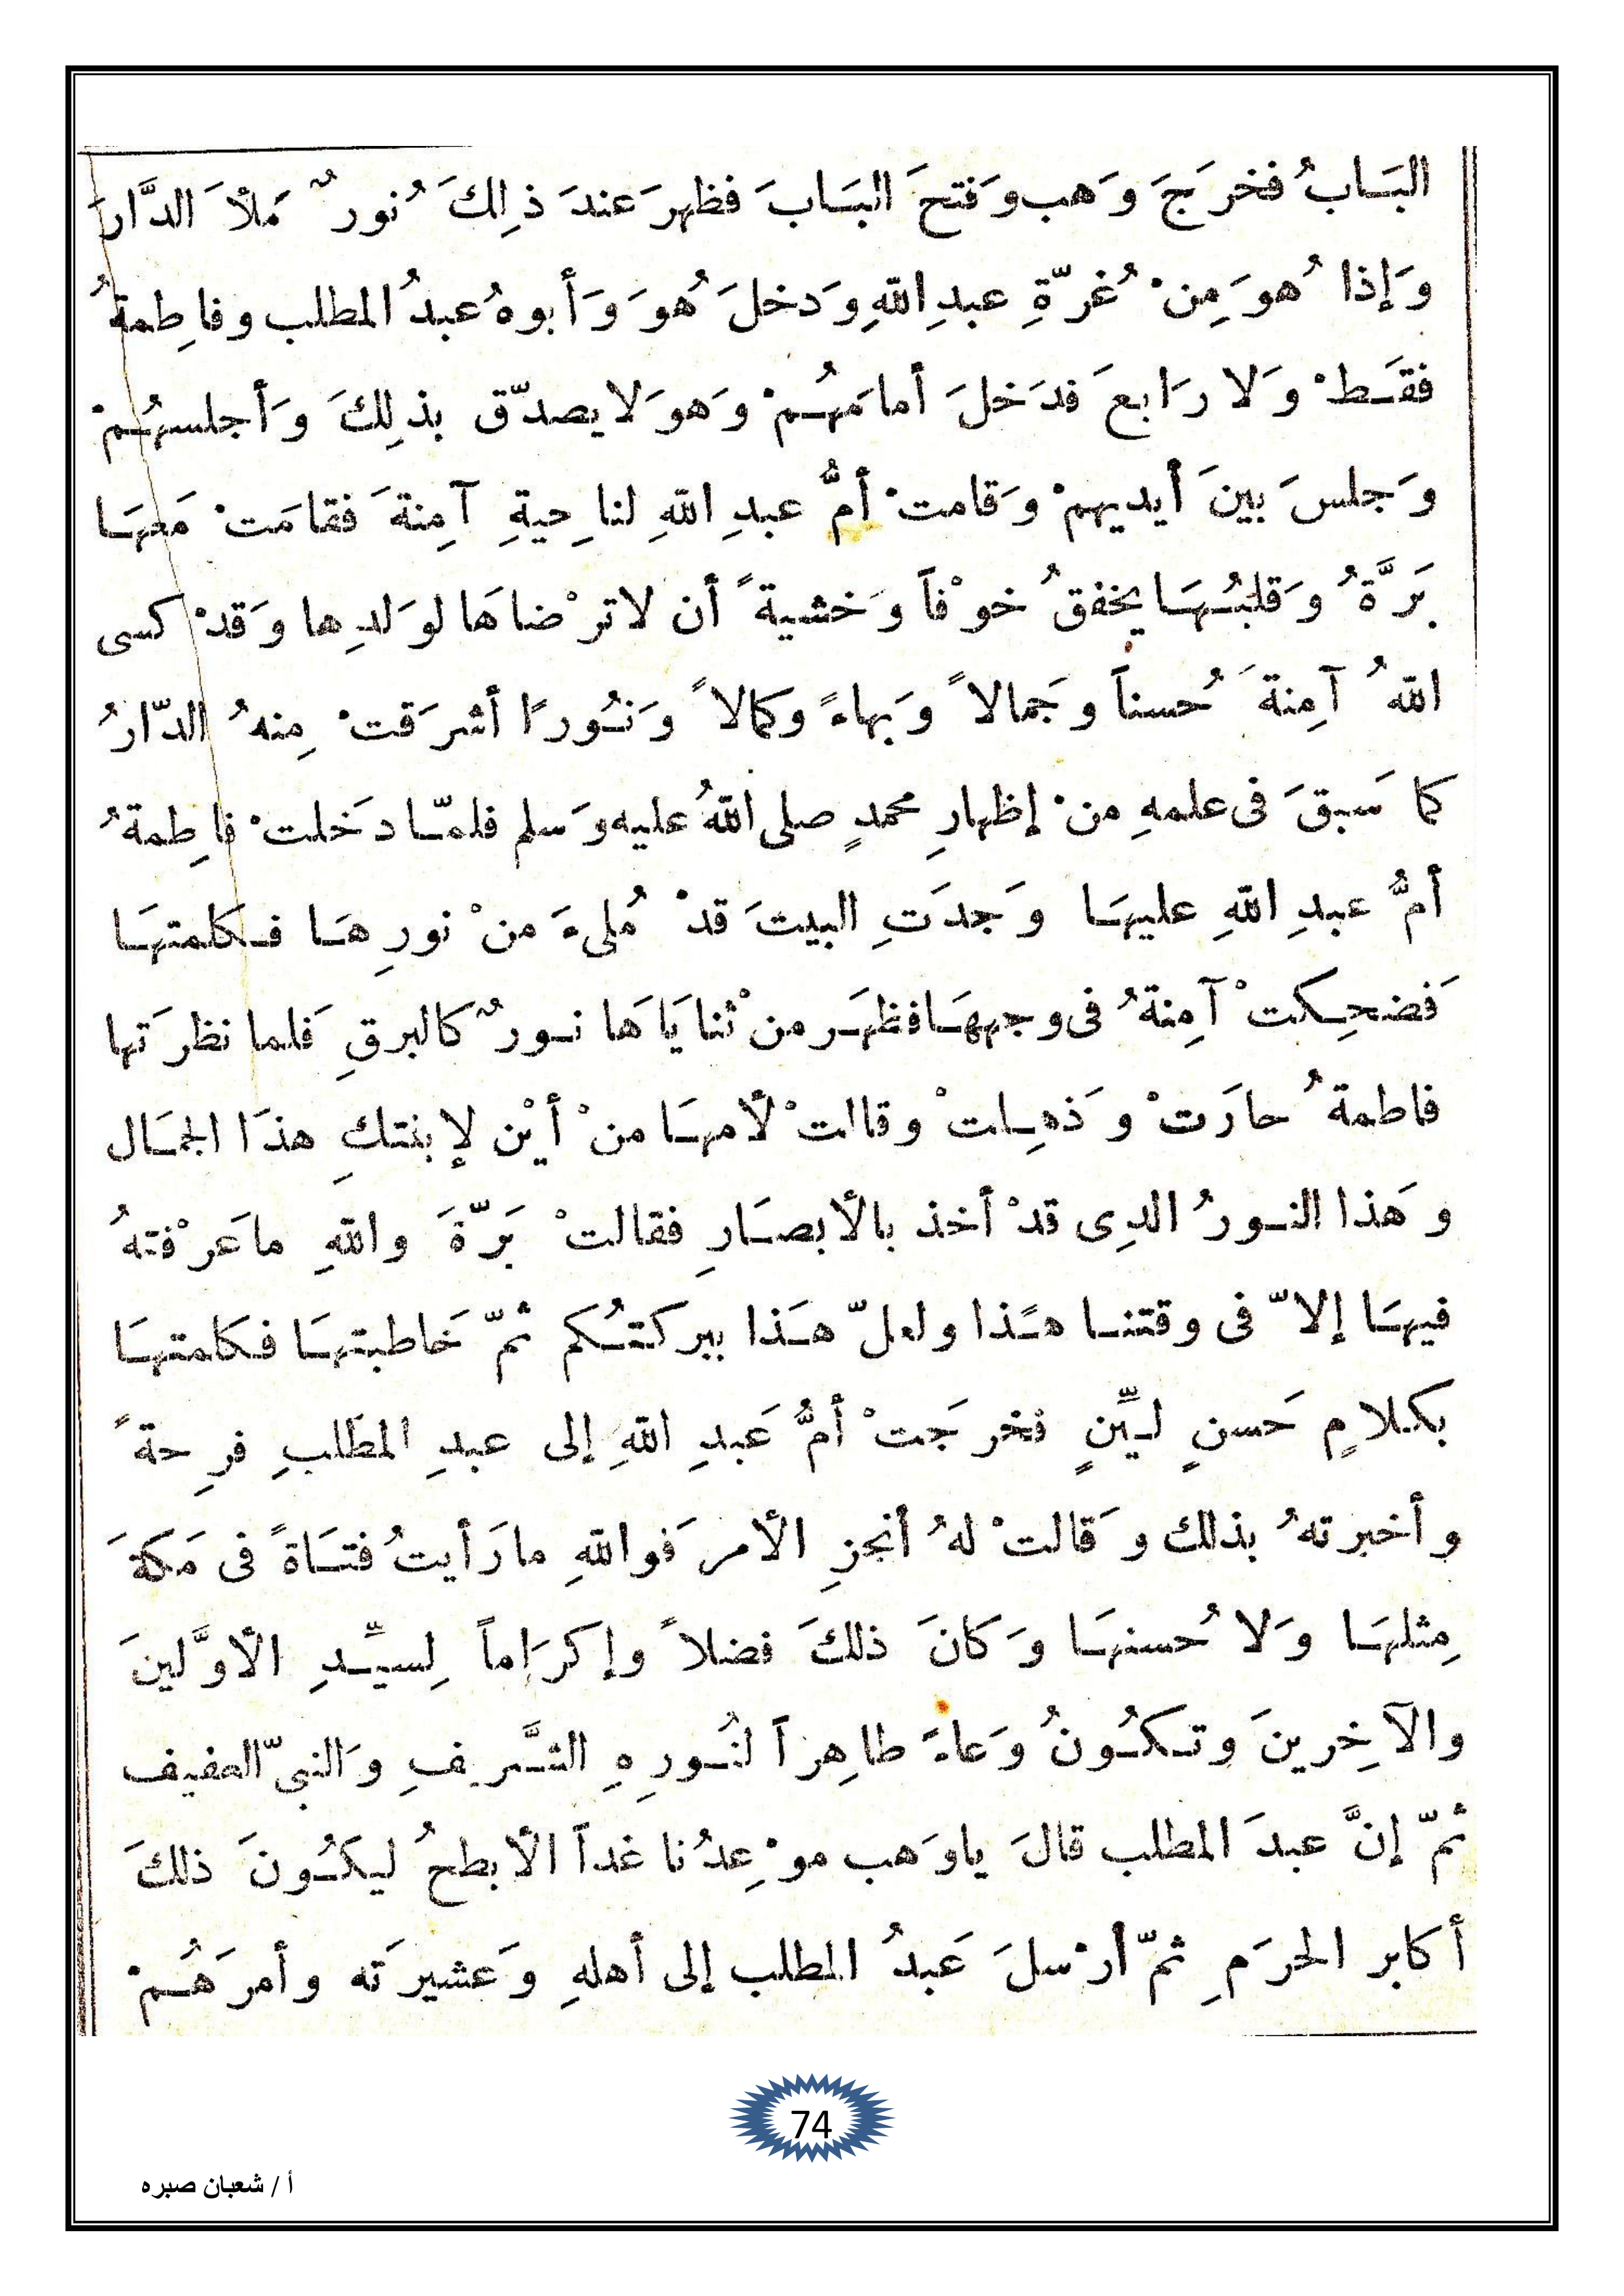 البَابُ فخرَجَ وَهب وَفتحَ البَابَ فظهرَ عندَ ذلِكَ نُورٌ مَلأَ الدَّارَ
وَإذا هُوَ مِنْ غُرّةِ عبدِ اللهِ وَدخلَ هُوَ وَأبوهُ عبدُ المطلب وفاطِمةُ
فقَطْ وَلا رَابعَ فدَخلَ أمامَهُمْ وَهوَ لا يصدّق بذلِكَ وَأجلسهُمْ
وَجلسَ بينَ أيديهمْ وَقامتْ أمُّ عبدِ اللهِ لناحِيةِ آمِنةَ فقامَتْ مَعهَا
بَرَّةُ وَقلبُهَا يخفقُ خوْفاً وَخشيةً أن لا ترْضاهَا لوَلدِها وَقدْ كسى
اللهُ آمِنةَ حُسناً وجَمالاً وَبهاءً وكمالاً وَنُورًا أشرَقتْ مِنهُ الدّارُ
كما سَبقَ فى علمهِ منْ إظهارِ محمدٍ صلى اللهُ عليه وَسلم فلمّا دخَلتْ فاطِمةُ
أمُّ عبدِ اللهِ عليهَا وَجدَتِ البيتَ قدْ مُلىءَ منْ نورِهَا فكلمتهَا
فَضحِكتْ آمِنةُ فى وجههَا فظهَر منْ ثنايَاهَا نورٌ كالبرقِ فَلما نظرَتها
فاطمةُ حارَتْ وَذهِلتْ وقالتْ لأمهَا منْ أيْن لإبنتكِ هذَا الجمَال
وهَذا النورُ الذِى قدْ أخذ بالأبصَارِ فقالتْ بَرّةَ واللهِ ماعَرْفتهُ
فيهَا إلاّ فى وقتنا هَذا ولعلّ هَذا ببركتُكم ثمّ خَاطبتهَا فكَلمتهَا
بكلامٍ حَسنٍ ليّنٍ فخرجَتْ أمُّ عَبدِ اللهِ إلى عبدِ المطَلبِ فرِحةً
وأخبرتهُ بذلك وَقالتْ لهُ أنجزِ الأمر فَواللهِ مارَأيتُ فتَاةً فى مَكةَ
مِثلهَا وَلا حُسنهَا وَكانَ ذلكَ فضلاً وإكرَاماً لِسيّدِ الأوَّلينَ
والآخِرينَ وتكُونُ وَعاءً طاهِراً لنُورِهِ الشَّريفِ وَالنبىّ العفيف
ثمّ إنَّ عبدَ المطلب قالَ ياوَهب موْعِدُنا غداً الأبطحُ ليكُونَ ذلكَ
أكابر الحرَمِ ثمّ أرْسلَ عَبدُ المطلب إلى أهلهِ وَعشيرَته وأمرَهُمْ
74
أ / شعبان صبره